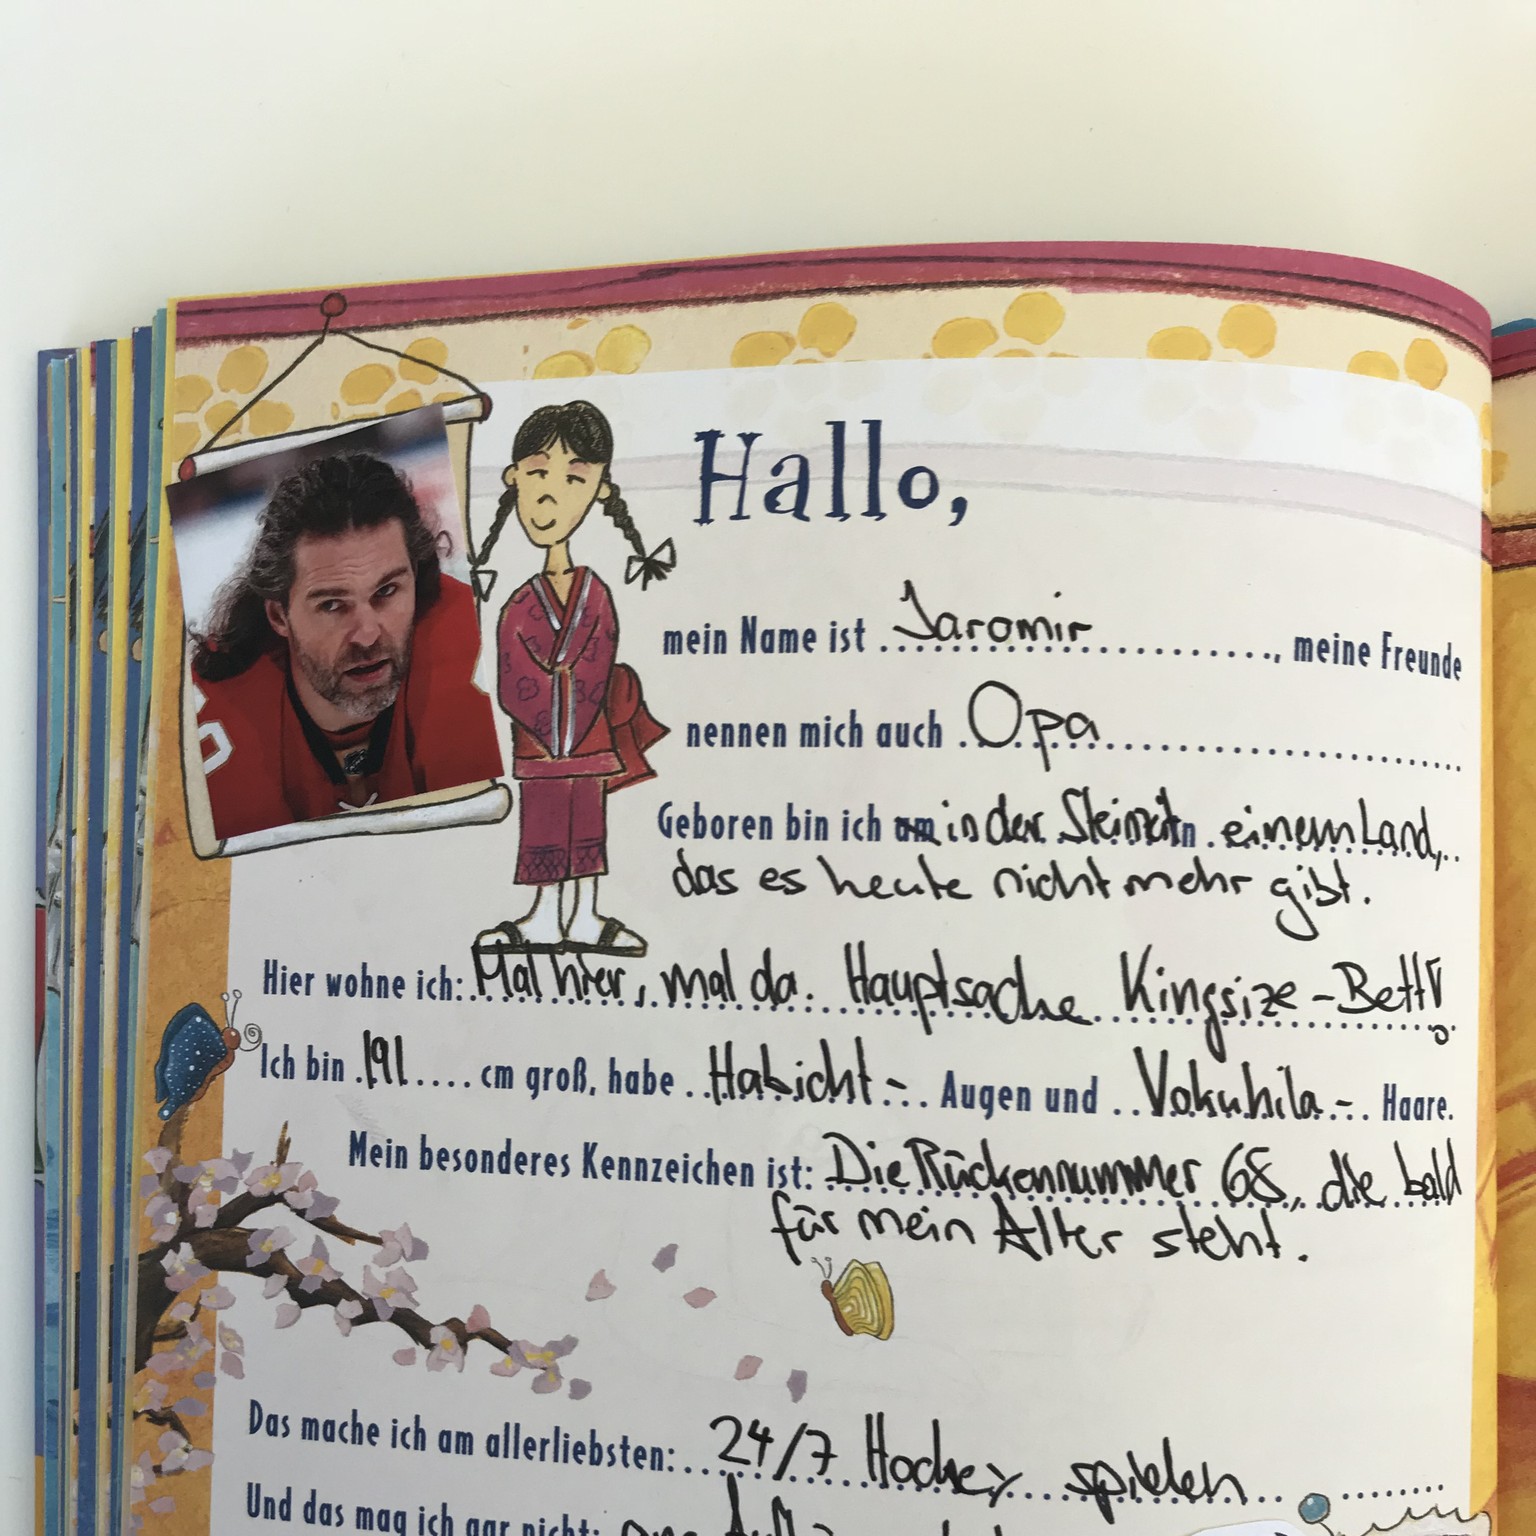 Hallo,
mein Name ist Jaromir, meine Freunde
nennen mich auch Opa
Geboren bin ich am in der Steinzeit in einem Land,
das es heute nicht mehr gibt.
Hier wohne ich: Mal hier, mal da. Hauptsache Kingsize-Bett!
Ich bin 191 cm groß, habe Habicht- Augen und Vokuhila- Haare.
Mein besonderes Kennzeichen ist: Die Rückennummer 68, die bald
für mein Alter steht.
Das mache ich am allerliebsten: 24/7 Hockey spielen
Und das mag ich gar nicht: